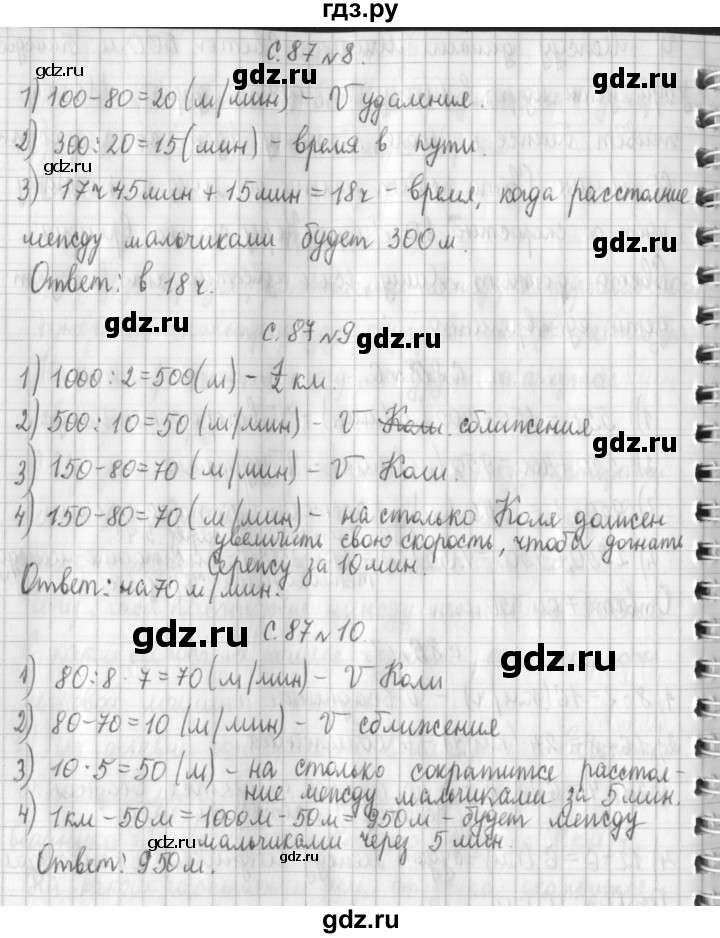 гдз.ру
С.87 №8.
gdz.ru gdz.ru gdz.ru
1) 100-80=20 (м/мин) - V удаления.
2) 300:20=15(мин) - время в пути.
gdz.ru gdz.ru
3) 17ч 45мин + 15мин = 18ч - время, когда расстояние
между мальчиками будет 300м.
gdz.ru
Ответ: в 18 ч.
gdz.ru
С.87 №9
gdz.ru
1) 1000:2=500(м) - 1/2 км.
2) 500:10=50 (м/мин) - V Коли. сближения
gdz.ru
3) 150-80=70 (м/мин) - V Коли.
4) 150-80=70 (м/мин) - на столько Коля должен
увеличить свою скорость, чтобы догнать
Серёжу за 10 мин.
Ответ: на 70 м/мин.
gdz.ru
С.87 №10.
gdz.ru
1) 80:8·7=70 (м/мин) - V Коли
2) 80-70=10 (м/мин) - V сближения
3) 10·5=50 (м) - на столько сократится расстоя-
ние между мальчиками за 5мин.
4) 1км - 50м = 1000м - 50м = 950м - будет между
gdz.ru
мальчиками через 5 мин.
gdz.ru
Ответ: 950м.
gdz.ru